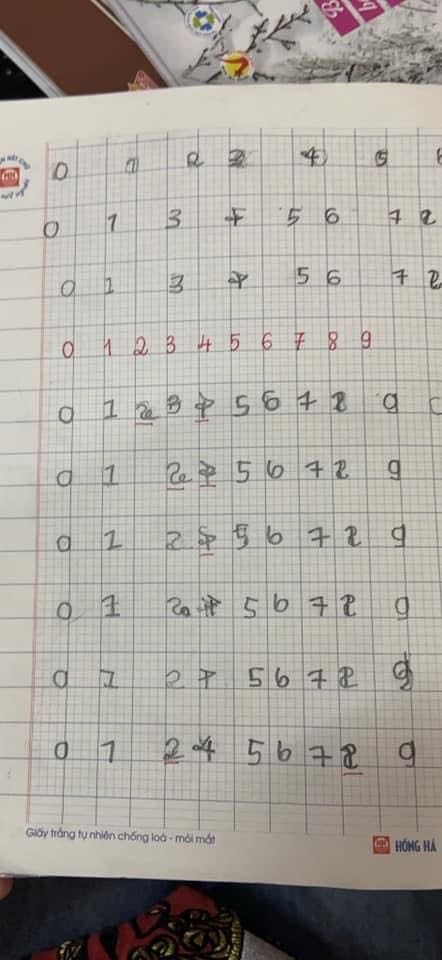 0 1 2 3 4 5 6
0 1 3 4 5 6 7 8
0 1 3 4 5 6 7 8
0 1 2 3 4 5 6 7 8 9
0 1 2 3 4 5 6 7 8 9
0 1 2 4 5 6 7 8 9
0 1 2 4 5 6 7 8 9
0 1 2 4 5 6 7 8 9
0 1 2 4 5 6 7 8 9
0 1 2 4 5 6 7 8 9
Giấy trắng tự nhiên chống loá - mỏi mắt
HỒNG HÀ